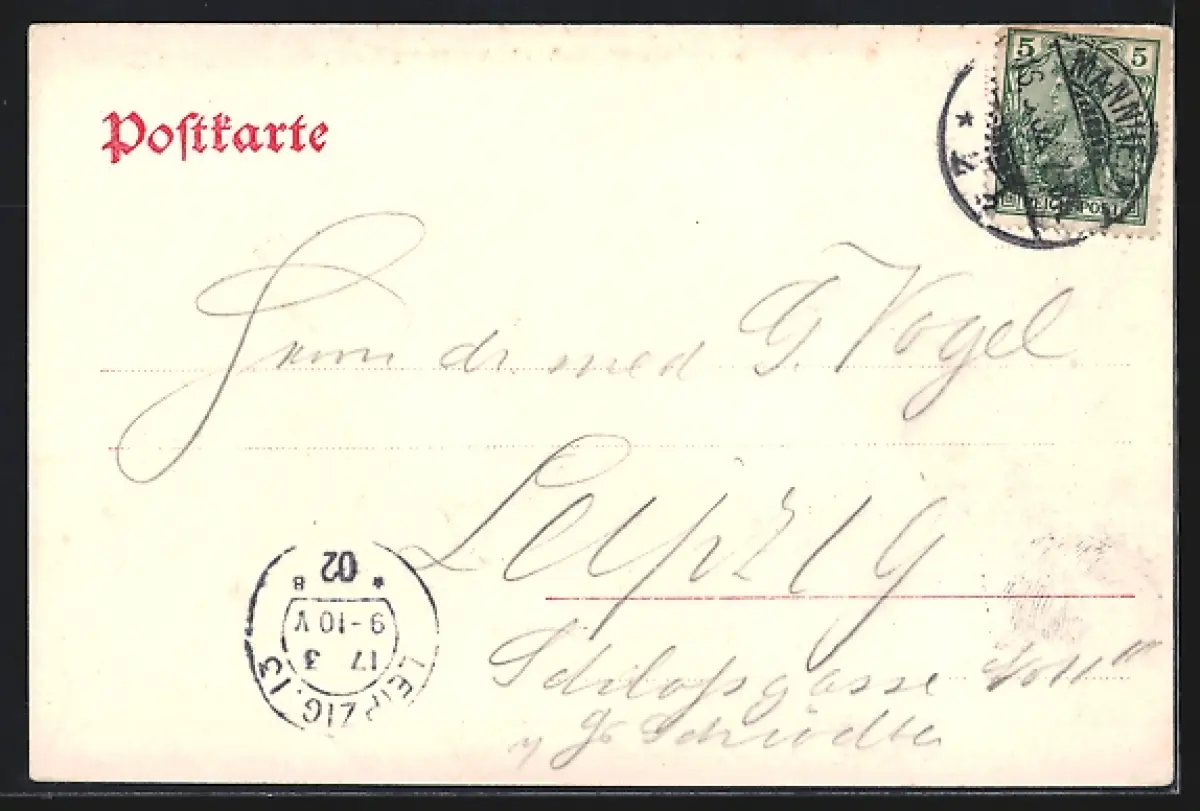 Postkarte
5 5
MANNHE
REICHSPOST
Herrn dr. med G. Vogel
Leipzig
Schloßgasse
LEIPZIG. 13
17 3
9-10 V
* 02 B